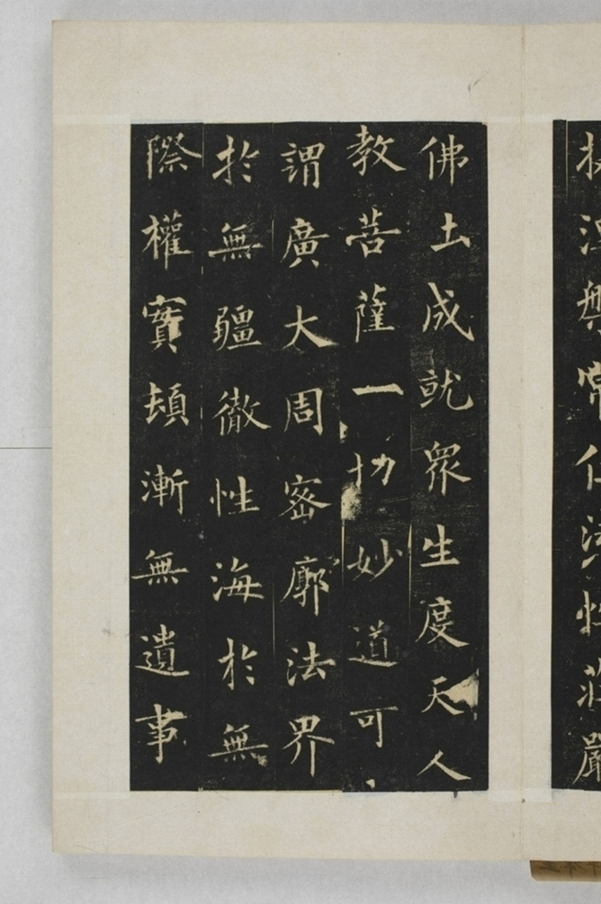 涅槃常住法性莊嚴
佛土成就衆生度天人
教菩薩一切妙道可
謂廣大周密廓法界
於無疆徹性海於無
際權實頓漸無遺事